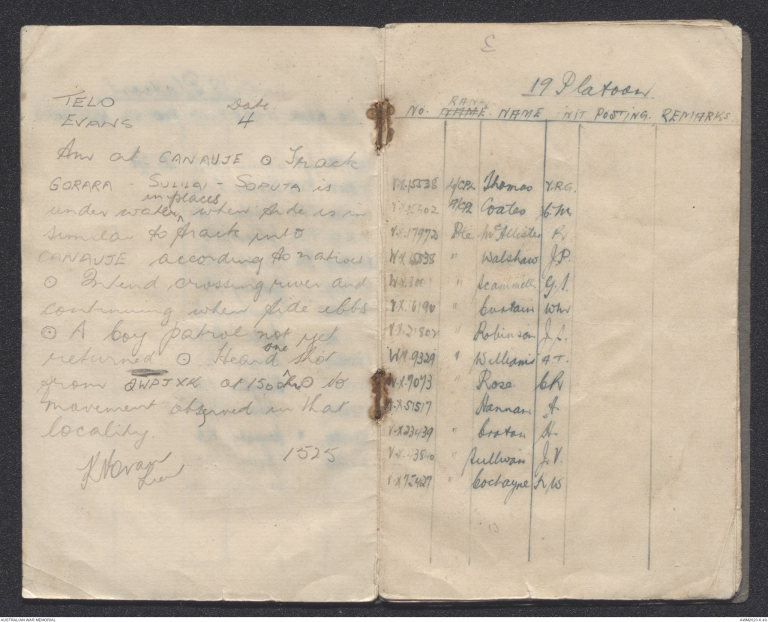 TELO Date
EVANS 4
Am at CANAUJE ⊙ Track
GORARA - SULILAI - SOPUTA is
in places
under water, when tide is in
similar to track into
CANAUJE according to natives
⊙ Intend crossing river and
continuing when tide ebbs
⊙ A boy patrol not yet
returned ⊙ Heard one shot
from QWPJXK at 1500 hrs ⊙ No
movement observed in that
locality
1525
3
19 Platoon
RANK
No. NAME. NAME INIT POSTING. REMARKS
L/CPL Thomas V.R.G.
Coates
VX17972 Pte McAllister R
" Walshaw J.P.
" Scammell G.
" Curtain Wm
" Robinson J.
WX9329 " Williams A.T.
" Rose C R
VX51517 " Hannan A
VX23439 " Croton H.
" Sullivan J.V.
VX75427 " Cochayne K.W
13
AUSTRALIAN WAR MEMORIAL